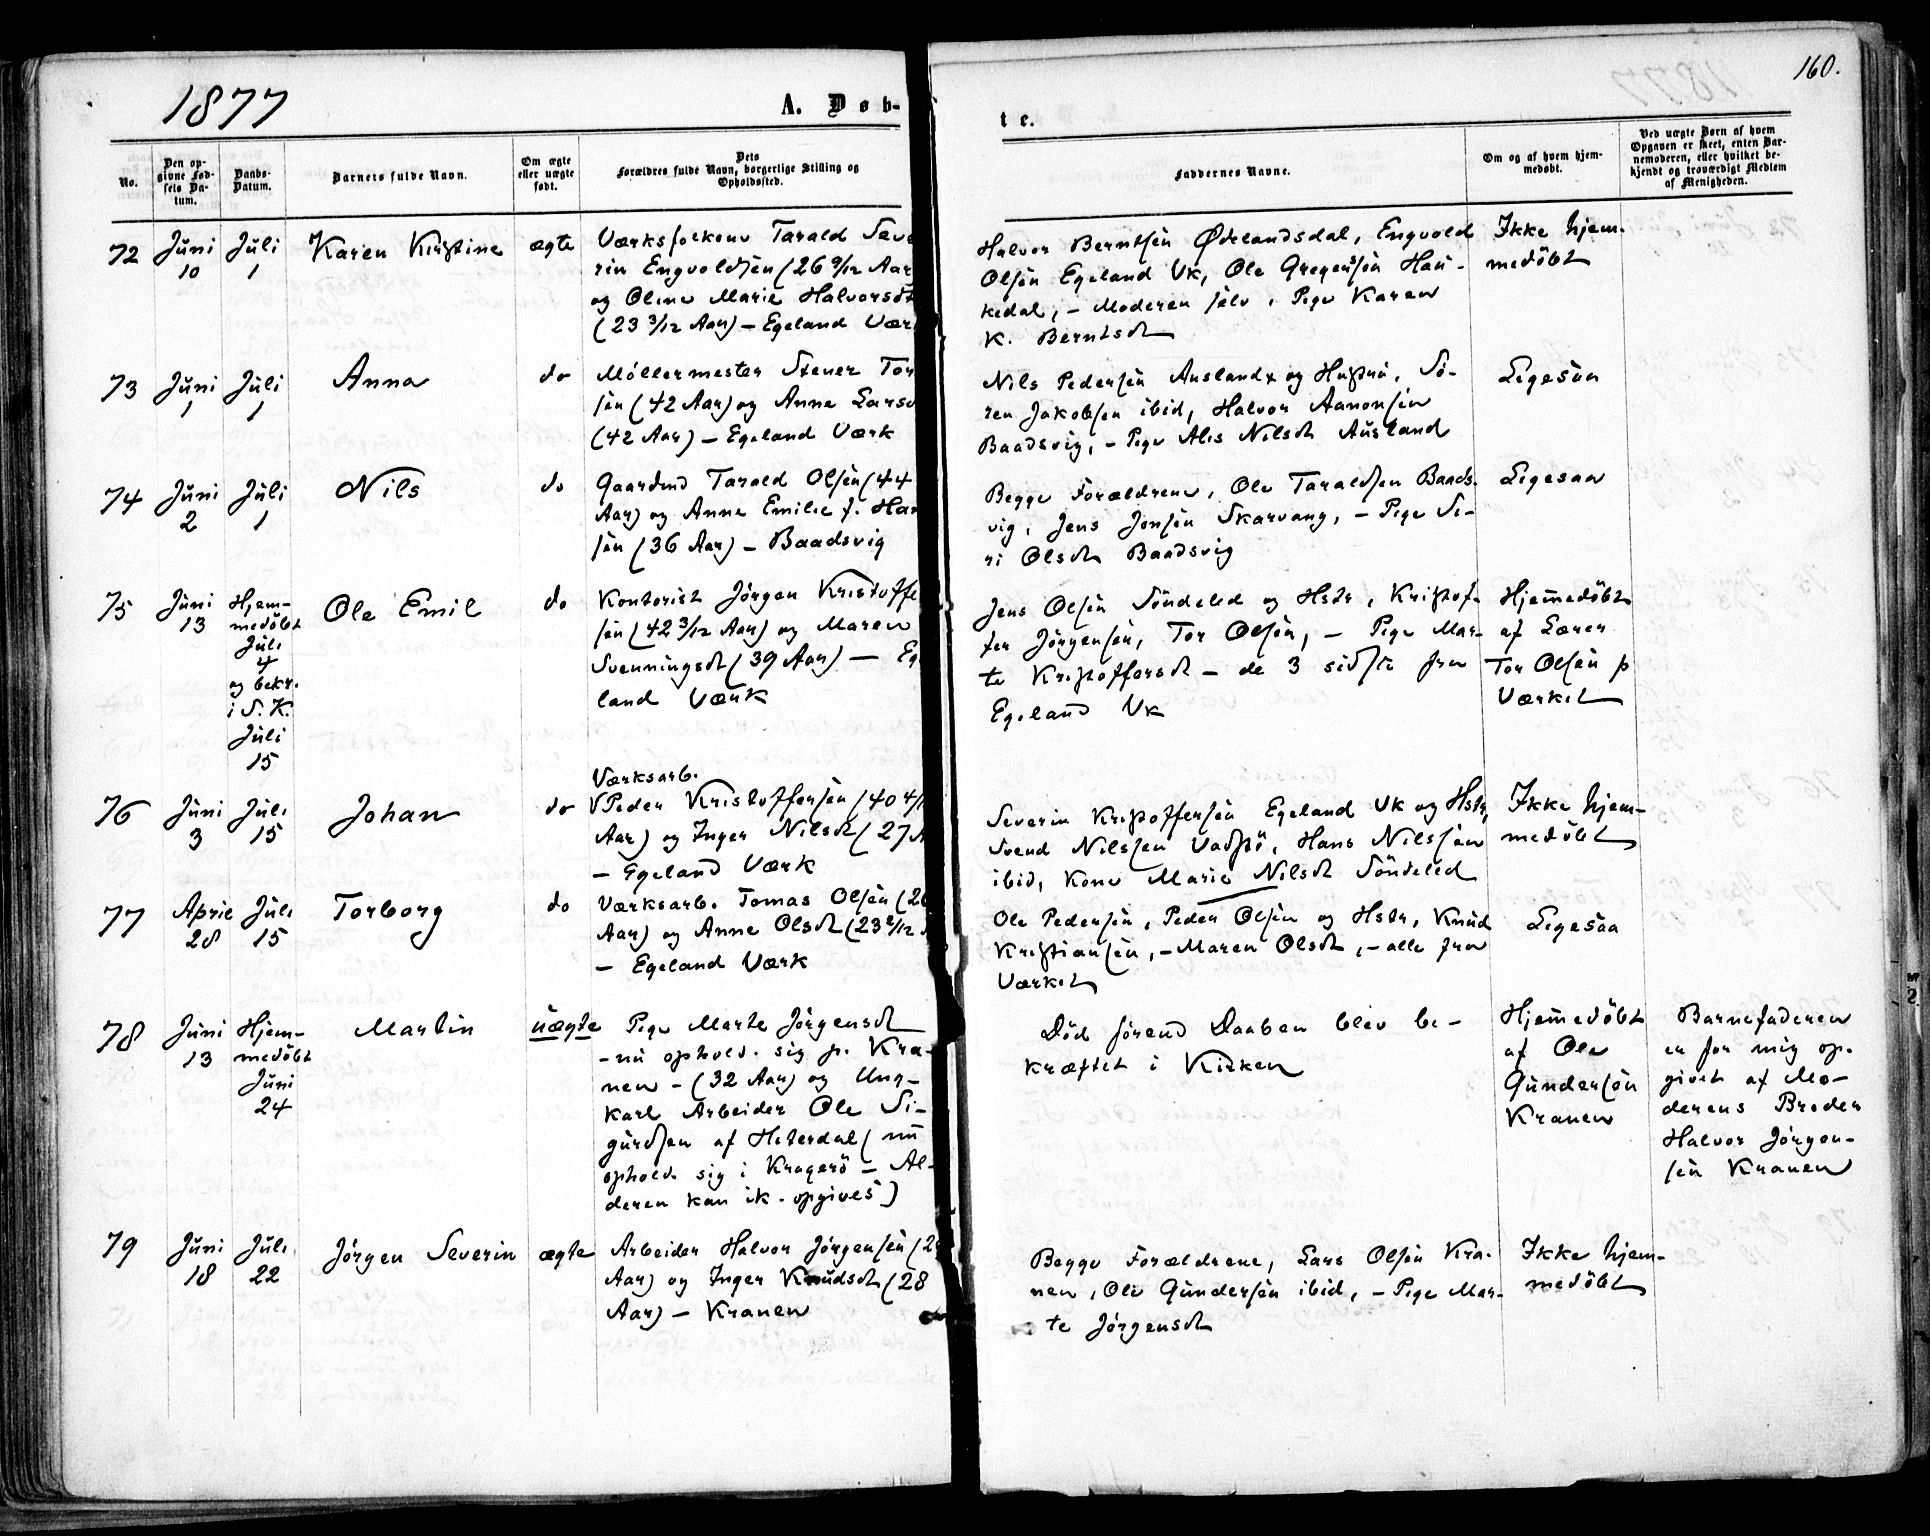 1877
A. Døb-
te.
160.
No.
Den op-
givne Fød-
sels Da-
tum.
Daabs-
Datum.
Barnets fulde Navn.
Om ægte
eller uægte
født.
Dets
Forældres fulde Navn, borgerlige Stilling og
Opholdssted.
Faddernes Navne.
Om og af hvem hjem-
medøbt.
Ved uægte Børn af hvem
Opgaven er skeet, enten Bar-
nemoderen, eller hvilket be-
kjendt og troværdigt Medlem
af Menigheden.
72
Juni
10
Juli
1
Karen Kirstine
ægte
Tarald Seve
rin Engvoldsen (26 9/12 Aar
og Oline Marie Halvorsdt
(23 3/12 Aar) – Egeland Værk
Halvor Berntsen Øklandsdal, Engvold
Olsen Egeland Vk, Ole Gregersen Hau-
kedal, – Moderen selv, Pige Karen
K. Berntsdt
Ikke hjem-
medøbt
73
Juni
1
Juli
1
Anna
do
Møllermester Stener Tor
sen (42 Aar) og Anne Larsd
(42 Aar) – Egeland Værk
Nils Pedersen Ausland og Hustru, Sø-
ren Jakobsen ibid, Halvor Aanonsen
Baadsvig, – Pige Alis Nilsdt Ausland
Ligesaa
74
Juni
2
Juli
1
Nils
do
Gaardmd Tarald Olsen (44
Aar) og Anne Emilie f. Han
sen (36 Aar) – Baadsvig
Begge Forældrene, Ole Taraldsen Baads-
vig, Jens Jensen Skarvang, – Pige Si-
ri Olsdt Baadsvig
Ligesaa
75
Juni
13
Hjem-
medøbt
Juli
4
og bekr.
i S. K.
Juli
15
Ole Emil
do
Kontorist Jørgen Kristoffe
sen (42 3/12 Aar) og Maren
Svenningsdt (39 Aar) – Eg
land Værk
Jens Olsen Søndeled og Hstr, Kristof-
fer Jørgensen, Tor Olsen, – Pige Mar-
te Kristoffersdt – de 3 sidste fra
Egeland Vk
Hjemmedøbt
af Lærer
Tor Olsen p
Værket
76
Juni
3
Juli
15
Johan
do
Værksarb.
Peder Kristoffersen (40 4/1
Aar) og Inger Nilsdt (27 A
– Egeland Værk
Severin Kristoffersen Egeland Vk og Hstr,
Svend Nilssen Vadstø, Hans Nilssen
ibid, Kone Marie Nilsdt Søndeled
Ikke hjem-
medøbt
77
April
28
Juli
15
Torborg
do
Værksarb. Tomas Olsen (26
Aar) og Anne Olsdt (23 2/12 A
– Egeland Værk
Ole Pedersen, Peder Olsen og Hstr, Knud
Kristiansen, – Maren Olsdt, – alle fra
Værket
Ligesaa
78
Juni
13
Hjem-
medøbt
Juni
24
Martin
uægte
Pige Marte Jørgensdt
– nu ophold. sig p. Kra-
nen – (32 Aar) og Ung-
karl Arbeider Ole Si-
gurdsen af Hiterdal (nu
ophold. sig i Kragerø – Al-
deren kan ik. opgives)
Død førend Daaben blev be-
kræftet i Kirken
Hjemmedøbt
af Ole
Gundersen
Kranen
Barnefaderen
er for mig op-
givet af Mo-
derens Broder
Halvor Jørgen-
sen Kranen
79
Juni
18
Juli
22
Jørgen Severin
ægte
Arbeider Halvor Jørgensen (2
Aar) og Inger Knudsdt (28
Aar) – Kranen
Begge Forældrene, Lars Olsen Kra-
nen, Ole Gundersen ibid, – Pige Mar-
te Jørgensdt
Ikke hjem-
medøbt